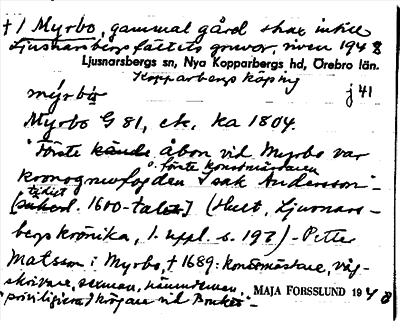 † 1 Myrbo, gammal gård strax intill
Ljusnarsbergsfältets gruvor, riven 1948
Ljusnarsbergs sn, Nya Kopparbergs hd, Örebro län.
Kopparbergs köping
j 41
Myrbo G 81, ek. ka 1804.
"Förste kände åbon vid Myrbo var
o. förste konstmästaren
kronogruvfogden Isak Andersson"-
tidigt
1600-talet] (Hult, Ljusnars-
bergskrönika, 1. uppl. s. 197)- Petter
Matsson i Myrbo, † 1689: konstmästare, väg-
skrivare, sexman, nämndeman,
"priviligierad krögare vid Bruket"-
MAJA FORSSLUND 1948